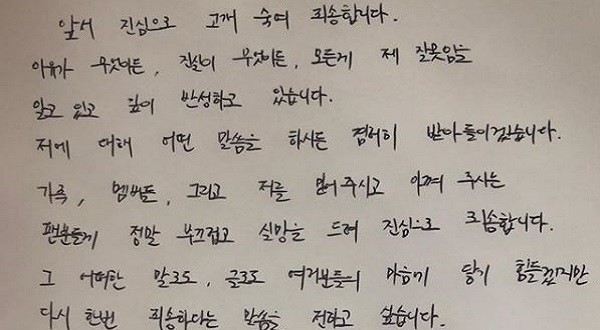 앞서 진심으로 고개 숙여 죄송합니다.
이유가 무엇이든, 진실이 무엇이든, 모든게 제 잘못임을
알고 있고 깊이 반성하고 있습니다.
저에 대해 어떤 말씀을 하시든 겸허히 받아들이겠습니다.
가족, 멤버들, 그리고 저를 믿어주시고 아껴 주시는
팬분들께 정말 부끄럽고 실망을 드려 진심으로 죄송합니다.
그 어떠한 말로도, 글로도 여러분들의 마음에 닿기 힘들겠지만
다시 한번 죄송하다는 말씀을 전하고 싶습니다.